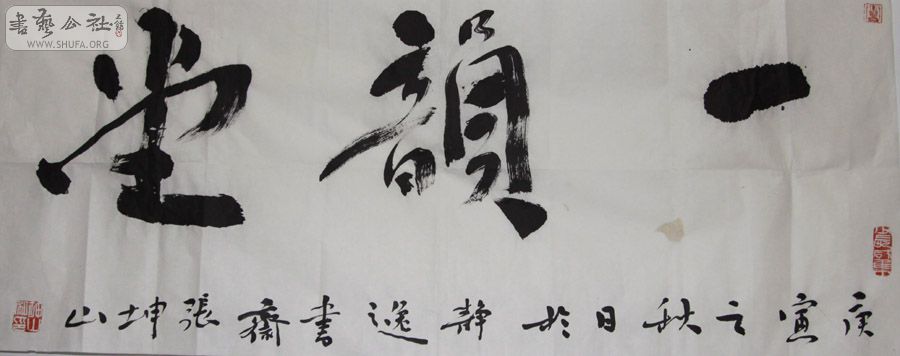 一韻堂
庚寅之秋日於靜逸書齋張坤山
書藝公社
WWW.SHUFA.ORG